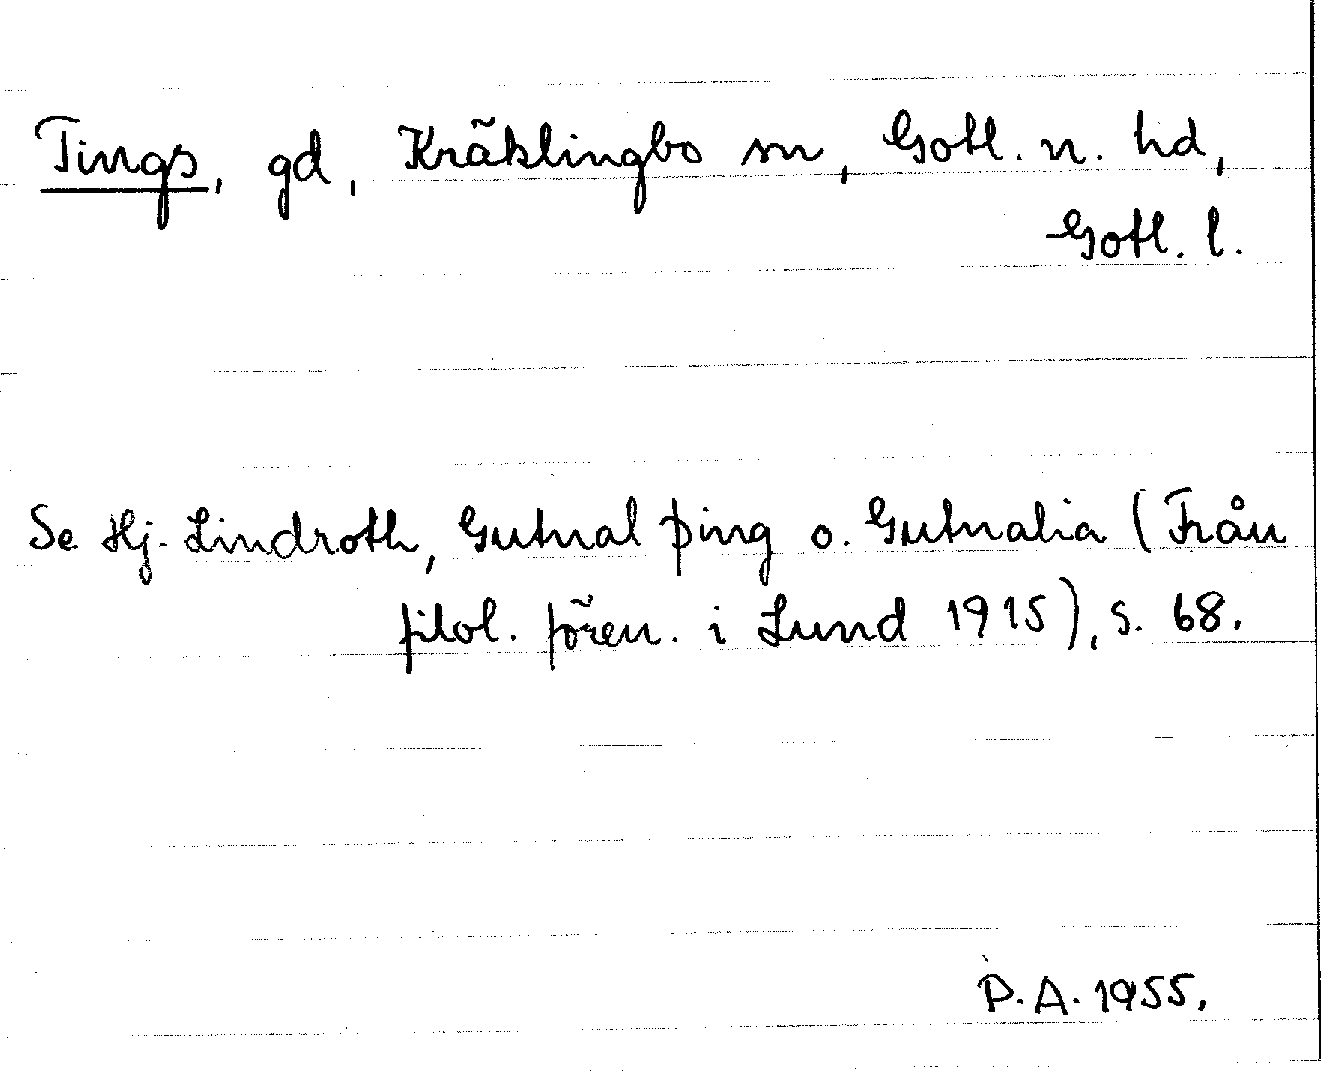 Tings, gd, Kräklingbo sn, Gotl. n. hd,
Gotl. l.
Se Hj. Lindroth, Gutnal þing o. Gutnalia (Från
filol. fören. i Lund 1915), s. 68.
P.A. 1955.